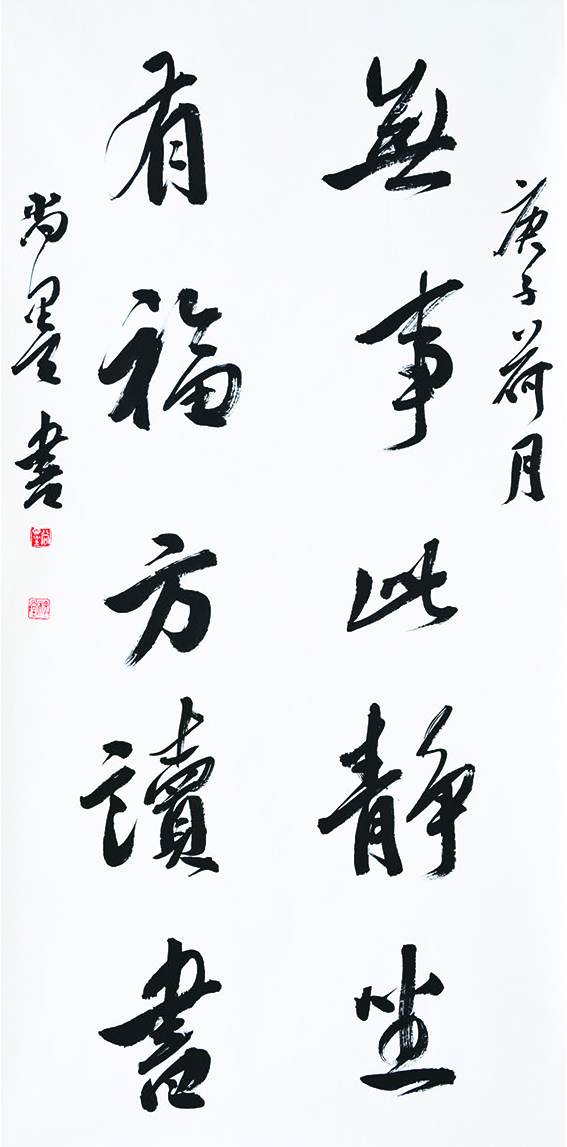 庚子荷月
無事此静坐
有福方讀書
尚墨書